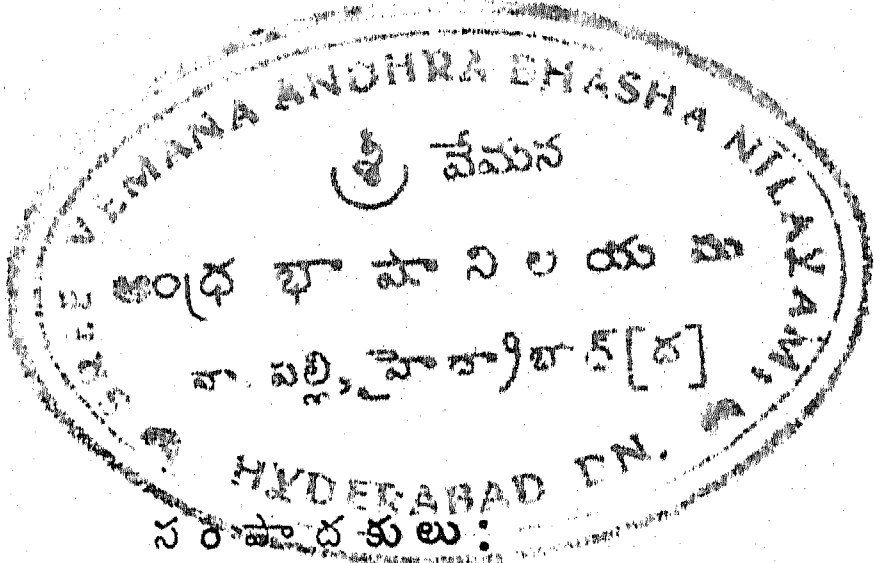 SREE VEMANA ANDHRA BHASHA NILAYAM,
శ్రీ వేమన
ఆంధ్ర భాషా నిలయము
పల్లి, హైదరాబాద్ [ద]
HYDERABAD DN.
సంపాదకులు :